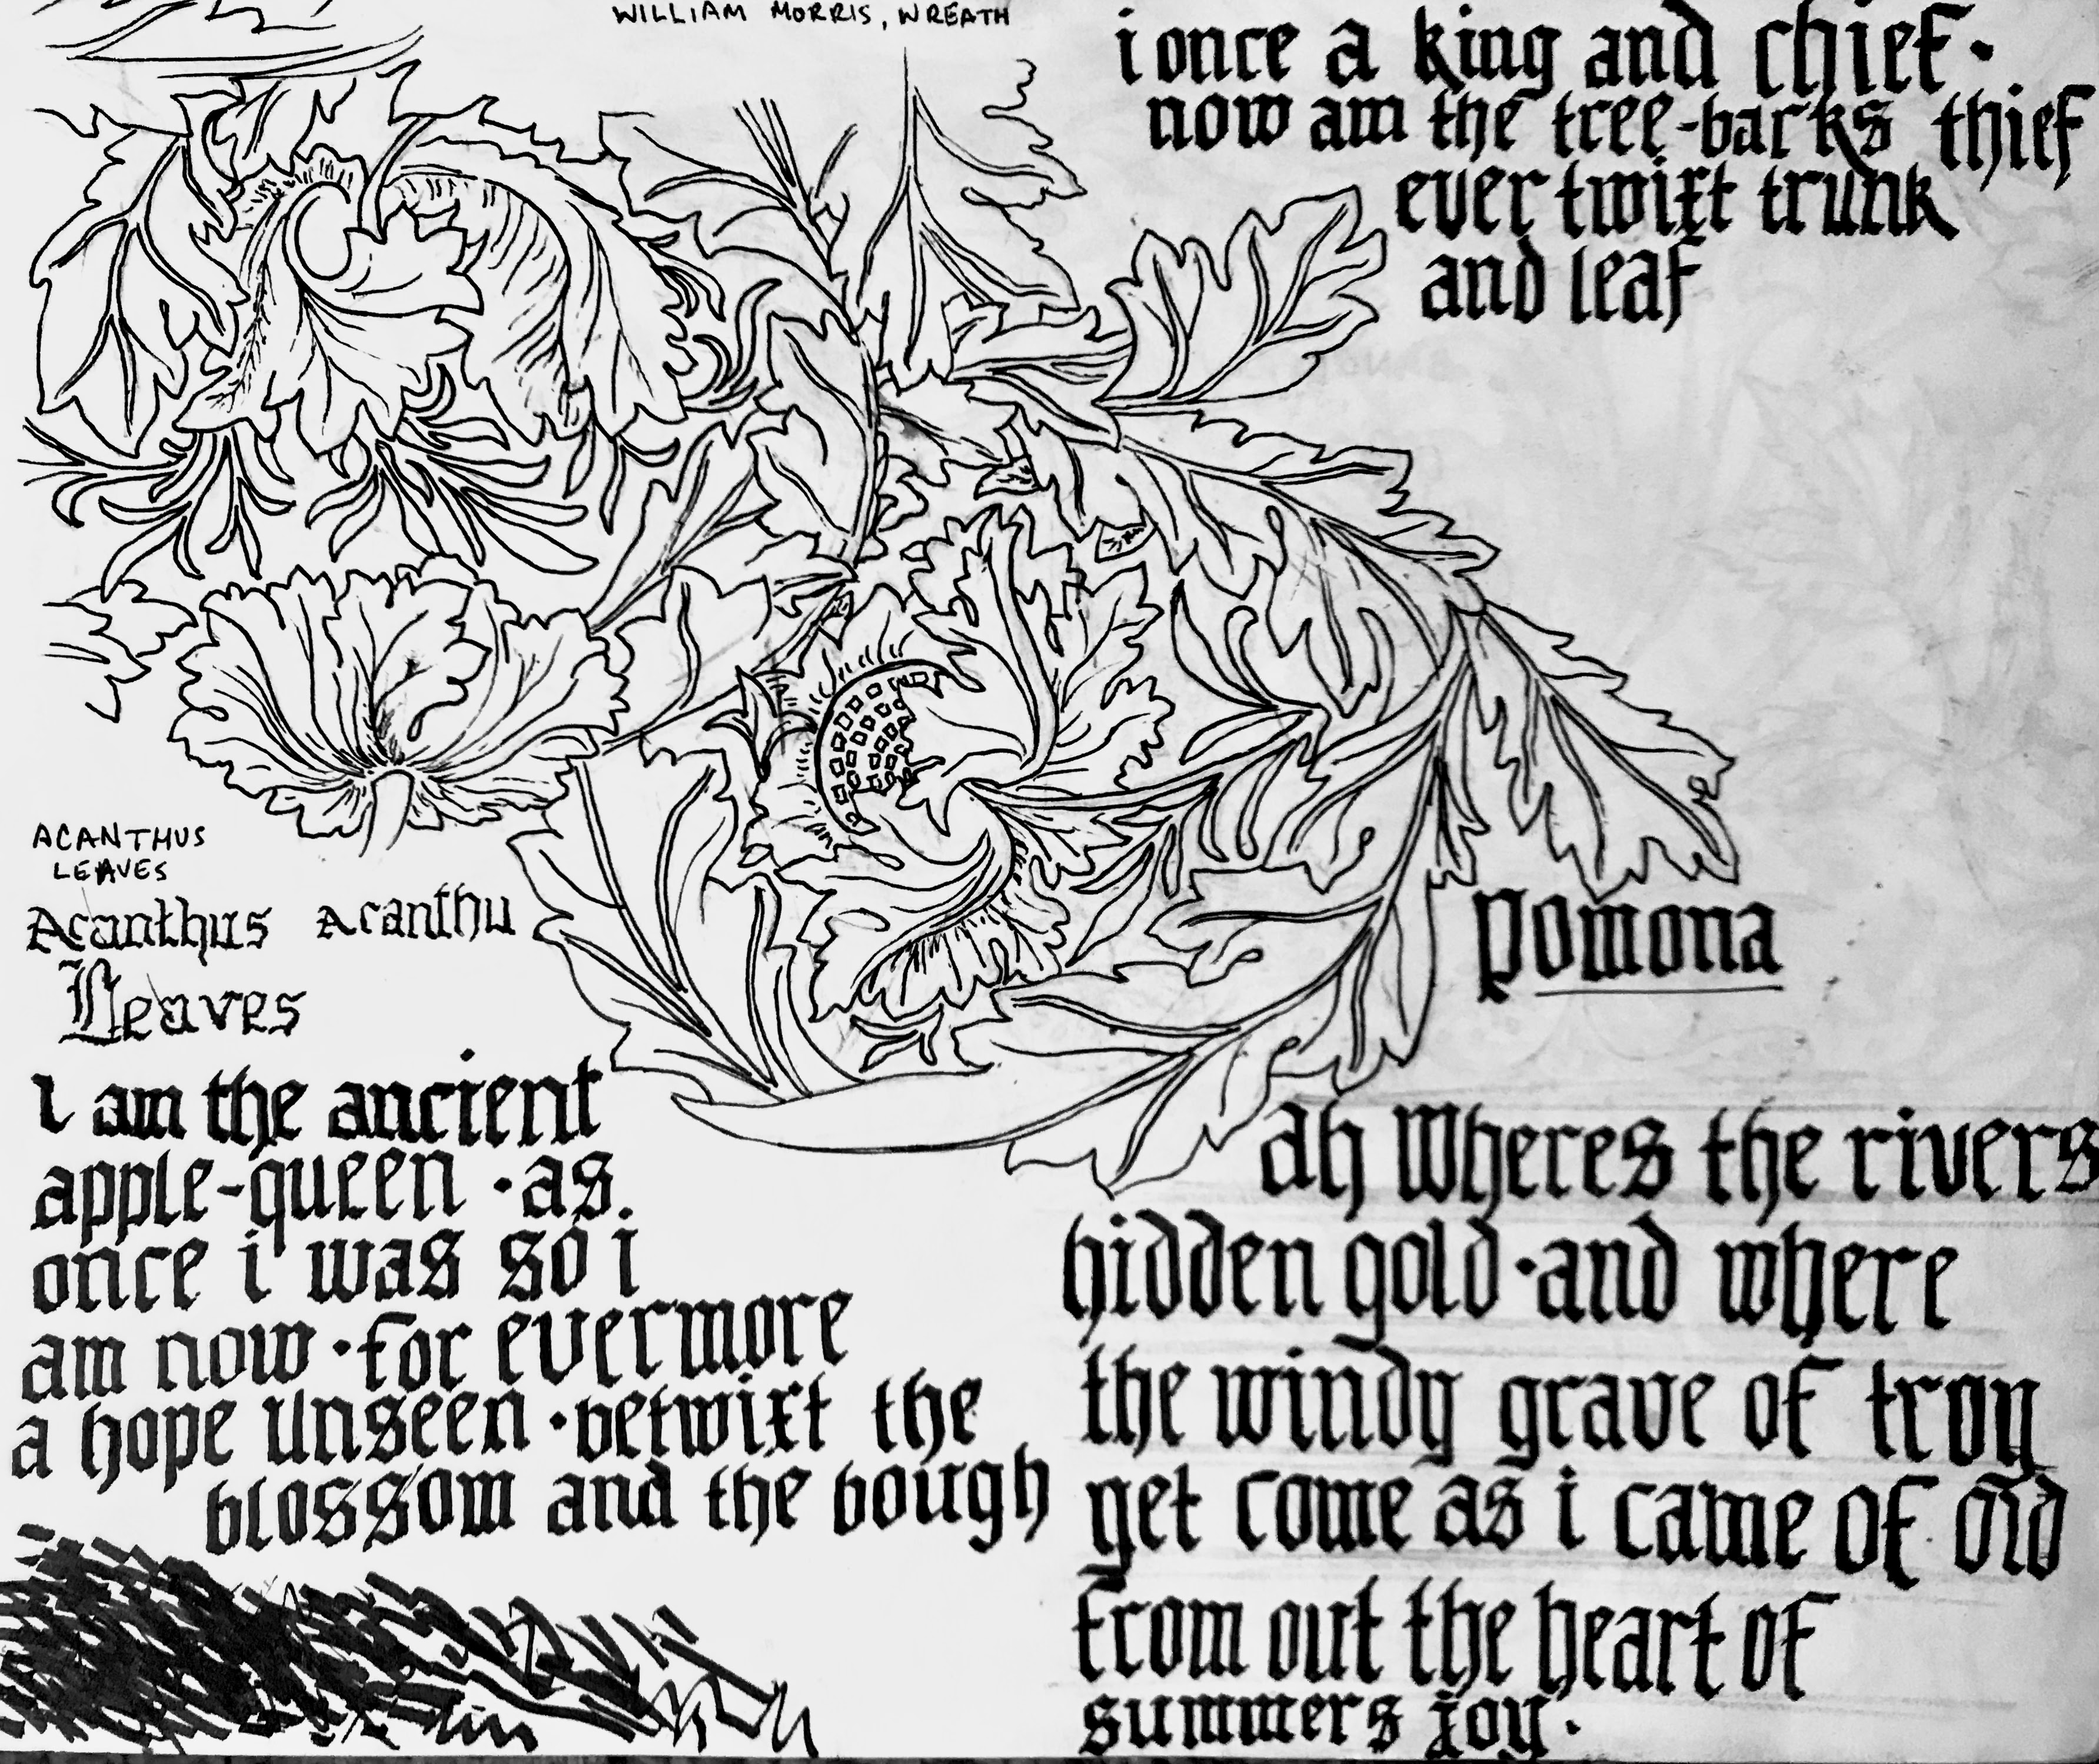 WILLIAM MORRIS, WREATH
i once a king and chief·
now am the tree-barks thief
ever twixt trunk
and leaf
ACANTHUS
LEAVES
Acanthus Acanthu
Leaves
Pomona
i am the ancient
apple-queen · as
once i was so i
am now · for evermore
a hope unseen · betwixt the
blossom and the bough
ah wheres the rivers
hidden gold · and where
the windy grave of troy
yet come as i came of old
from out the heart of
summers joy·